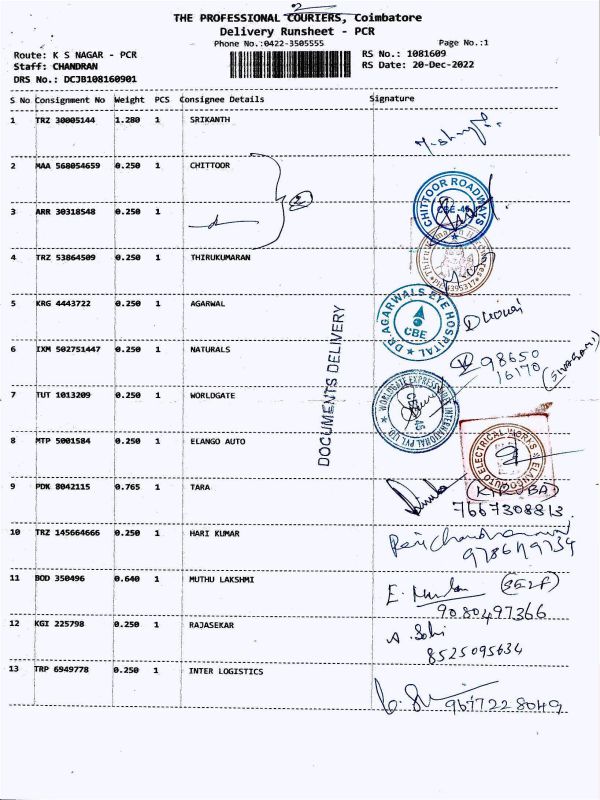 2
THE PROFESSIONAL COURIERS, Coimbatore
Delivery Runsheet - PCR
Phone No.:0422-3505555 Page No.:1
Route: K S NAGAR - PCR RS No.: 1081609
Staff: CHANDRAN RS Date: 20-Dec-2022
DRS No.: DCJB108160901
S No Consignment No Weight PCS Consignee Details Signature
1 TRZ 30005144 1.280 1 SRIKANTH
2 MAA 568054659 0.250 1 CHITTOOR
CHITTOOR ROADWAYS
CBE-45
3 ARR 30318548 0.250 1 2
4 TRZ 53864509 0.250 1 THIRUKUMARAN
5 KRG 4443722 0.250 1 AGARWAL
DR.AGARWALS EYE HOSPITAL
CBE
6 IXM 502751447 0.250 1 NATURALS
98650
16170
DOCUMENTS DELIVERY
7 TUT 1013209 0.250 1 WORLDGATE
WORLDGATE EXPRESS INTERNATIONAL PVT. LTD.
8 MTP 5001584 0.250 1 ELANGO AUTO
ELANGO AUTO ELECTRICAL WORKS
9 PDK 8042115 0.765 1 TARA
(KIRUBA)
7667308813
10 TRZ 145664666 0.250 1 HARI KUMAR
11 BOD 350496 0.640 1 MUTHU LAKSHMI
(SELF)
9080497366
12 KGI 225798 0.250 1 RAJASEKAR
8525095634
13 TRP 6949778 0.250 1 INTER LOGISTICS
9677228049